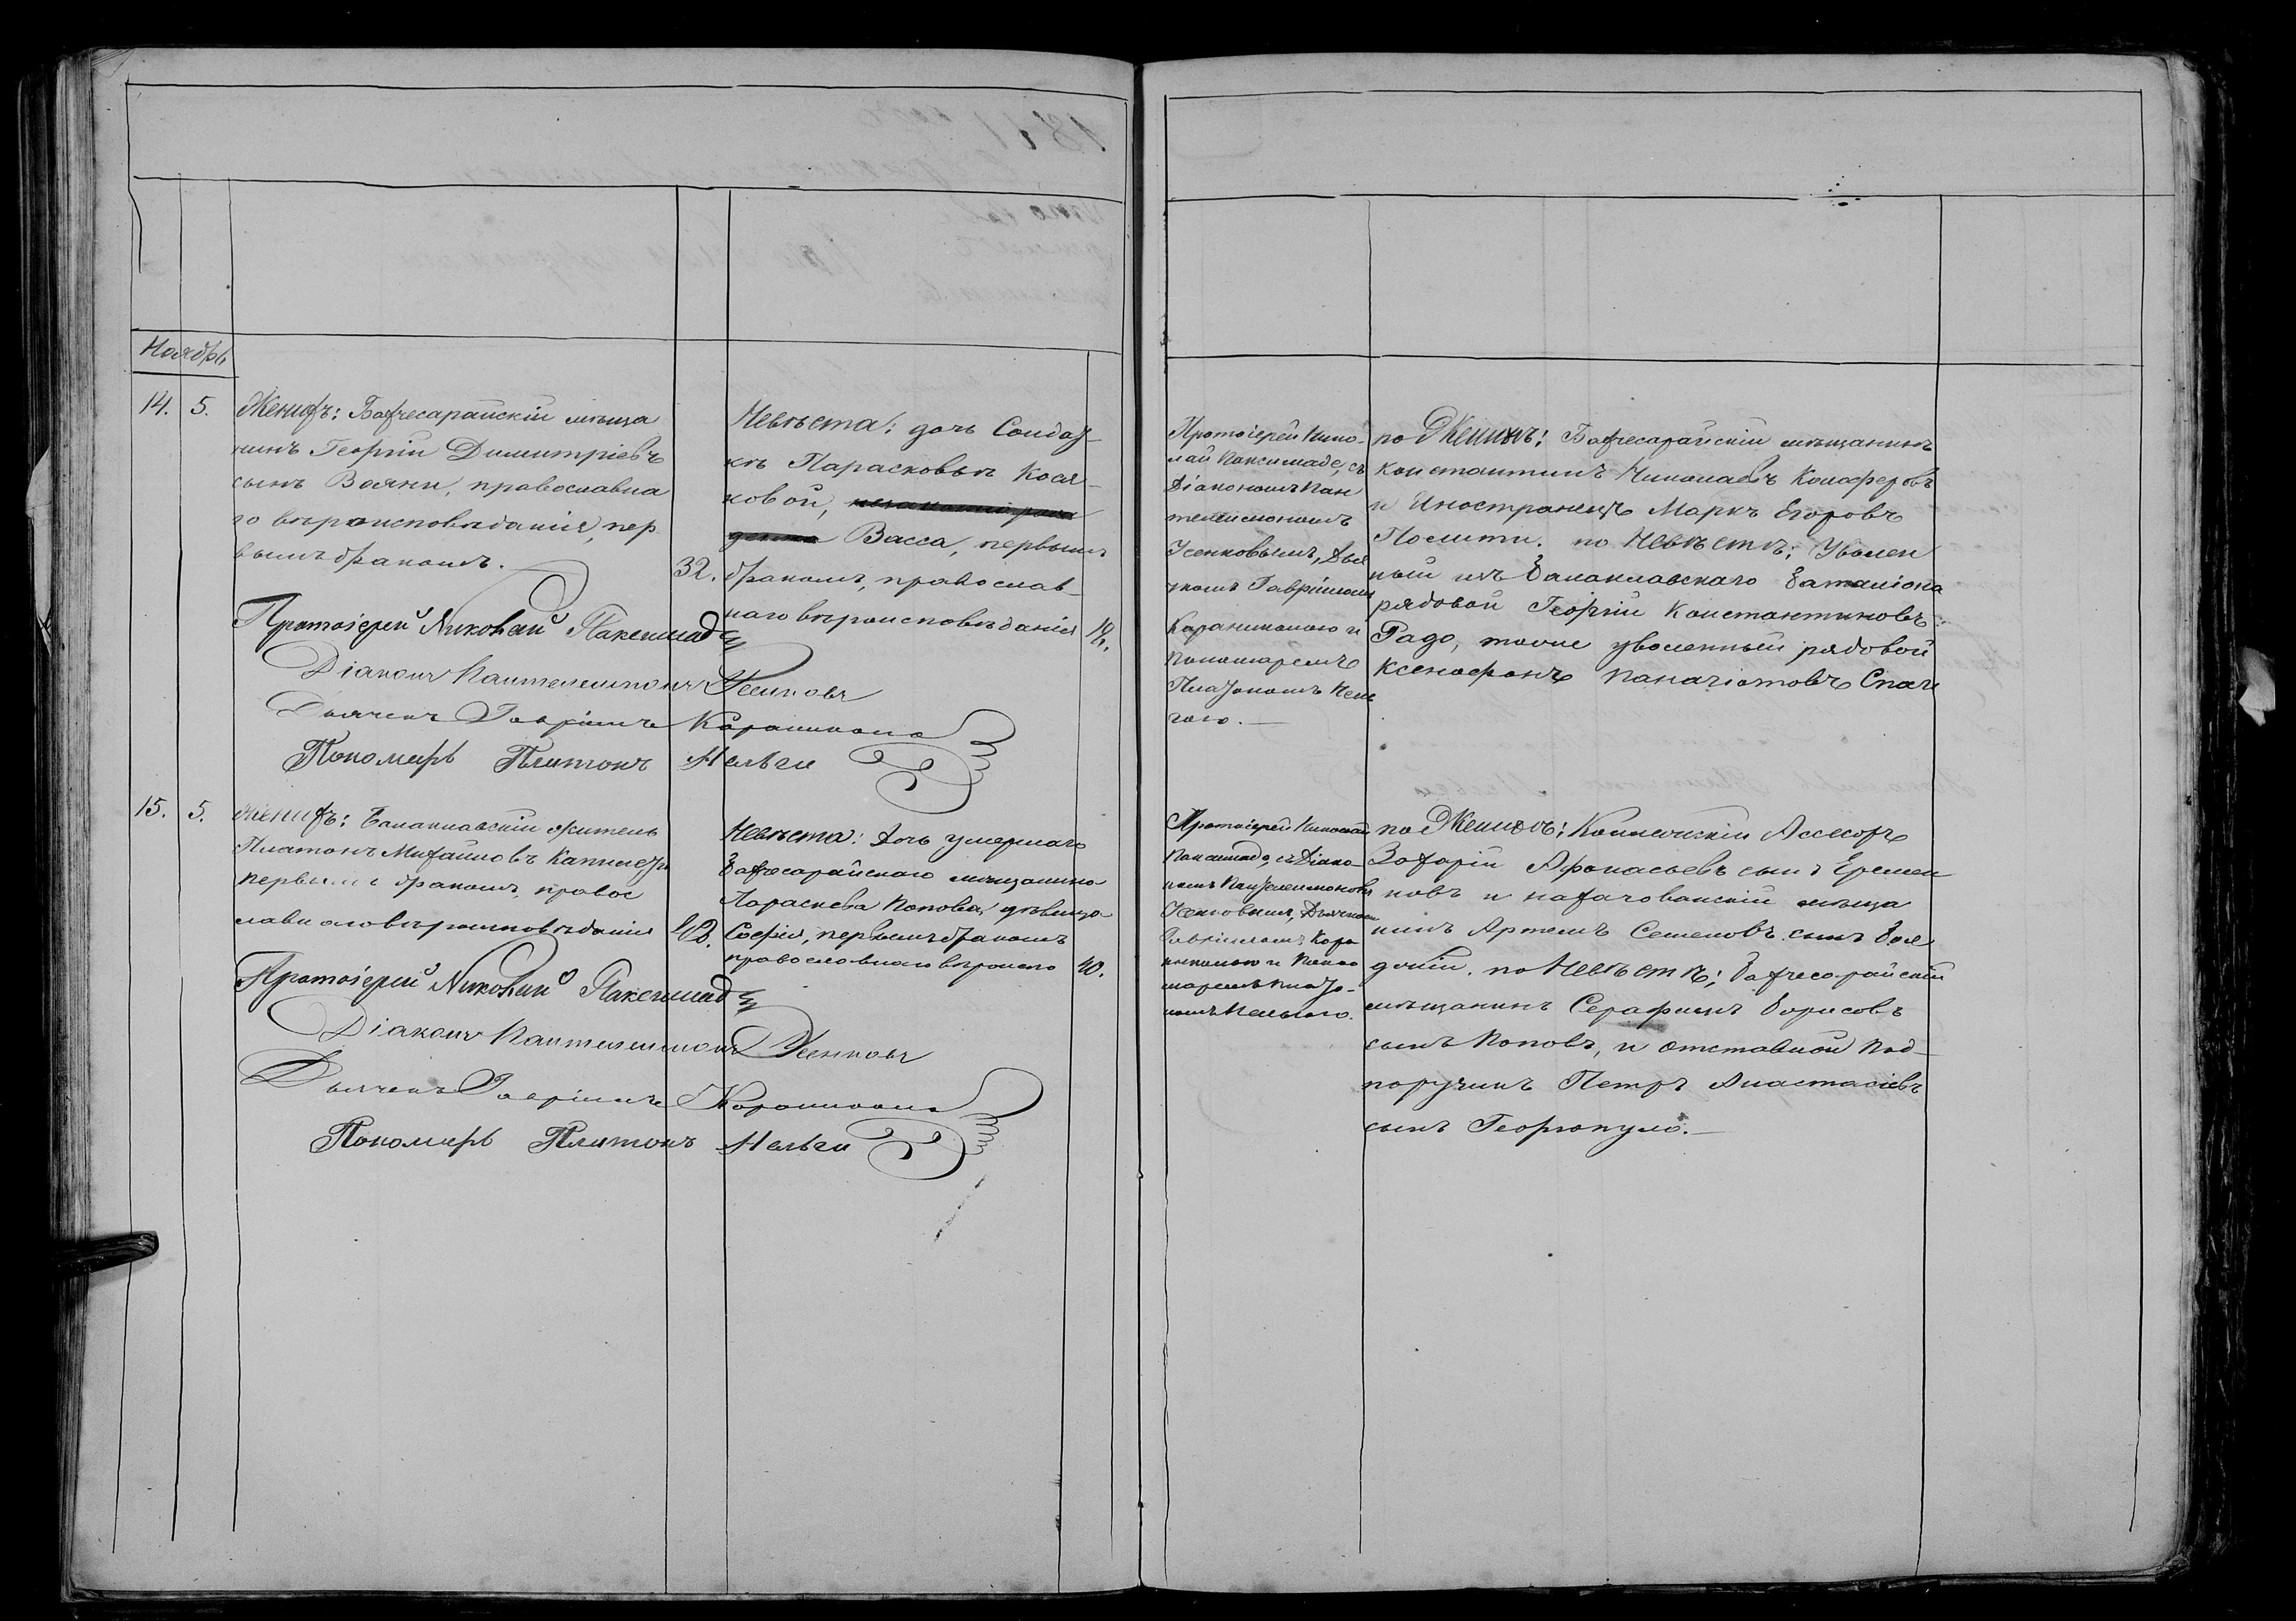 Ноябрь
14. 5.
Женихъ: Бахчесарайскій мѣща
нинъ Георгій Димитріевъ
сынъ Вояни, православна
го вѣроисповѣданія, пер
вымъ бракомъ.
32.
Невѣста: дочь Солдат-
къ Парасковьи Кося-
ковой,
Васса, первымъ
бракомъ, православ-
наго вѣроисповѣданія
18.
Протоіерей Николай Паксимаде
Діаконъ Пантелеимонъ Усенковъ
Дьячекъ Гавріилъ Караникола
Пономарь Платонъ Мельги
Протоіерей Нико-
лай Паксимаде, съ
Діакономъ Пан
телеимономъ
Усенковымъ, Дья
комъ Гавріиломъ
Караниколою и
Пономаремъ
Платономъ Мель
гою.
по Женихѣ: Бахчесарайскій мѣщанинъ
Константинъ Николаевъ Конферовъ
и Иностранецъ Маркъ Егоровъ
Полити. по Невѣстѣ: Уволен
ный изъ Балаклавскаго баталіона
рядовой Георгій Константиновъ
Радо, тоже уволенный рядовой
Ксенофонъ Панагіотовъ Спаги
15. 5.
Женихъ: Балаклавскій житель
Платонъ Михайловъ
первымъ бракомъ, правос
лавнаго вѣроисповѣданія
42.
Невѣста: Дочь умершаго
Бахчесарайскаго мѣщанина
Параскева Попова, дѣвица
Софія, первымъ бракомъ
православнаго вѣроиспо
40.
Протоіерей Николай Паксимаде
Діаконъ Пантелеимонъ Усенковъ
Дьячекъ Гавріилъ Караникола
Пономарь Платонъ Мельги
Протоіерей Николай
Паксимаде, съ Діако-
номъ Пантелеимономъ
Усенковымъ, Дьячкомъ
Гавріиломъ Кара
николою и Поно
маремъ Плато-
номъ Мельгого.
по Женихѣ: Коллежскій Ассесоръ
Захарій Афанасьевъ сынъ Еремен
ковъ и нахичеванскій мѣща
нинъ Артемъ Семеновъ сынъ Бол
дскій. по Невѣстѣ: Бахчесарайскій
мѣщанинъ Серафимъ Борисовъ
сынъ Поповъ, и отставной Под-
поручикъ Петръ Анастасіевъ
сынъ Георгопуло.